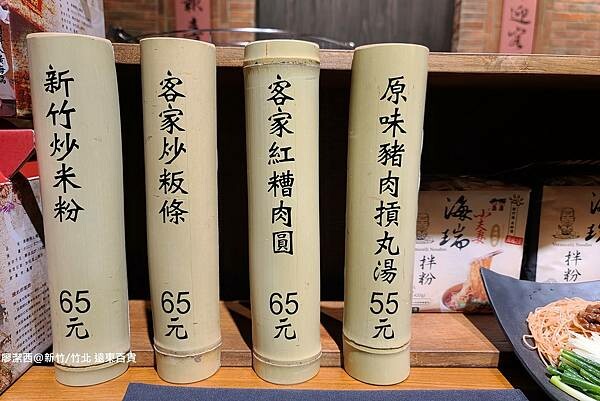 新竹炒米粉
65元
客家炒粄條
65元
客家紅糟肉圓
65元
原味豬肉摃丸湯
55元
迎客
海瑞
拌粉
海瑞
拌粉
廖潔西@新竹/竹北 遠東百貨